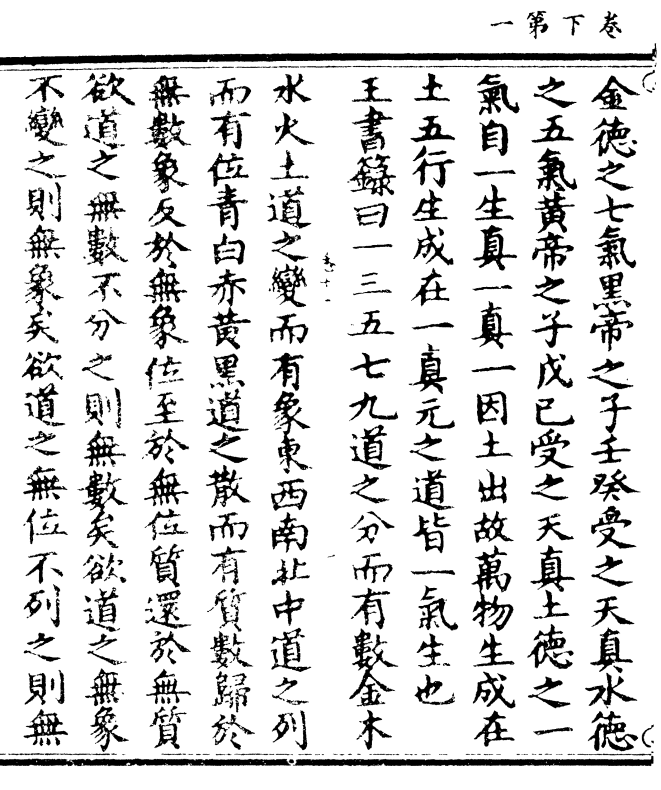 卷下第一
金德之七氣黑帝之子壬癸受之天真水德
之五氣黃帝之子戊己受之天真土德之一
氣自一生真一真一因土出故萬物生成在
土五行生成在一真元之道皆一氣生也
玉書籙曰一三五七九道之分而有數金木
水火土道之變而有象東西南北中道之列
而有位青白赤黃黑道之散而有質數歸於
無數象反於無象位至於無位質還於無質
欲道之無數不分之則無數矣欲道之無象
不變之則無象矣欲道之無位不列之則無